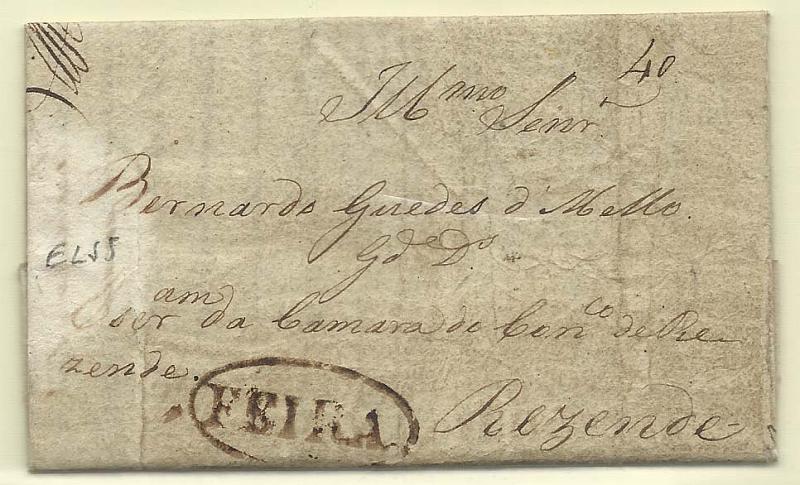 40
Illmo Senr
Bernardo Guedes d'Mello.
Gde Ds
EL55
Escram da Camara do Conco de Re-
zende.
FEIRA
Rezende